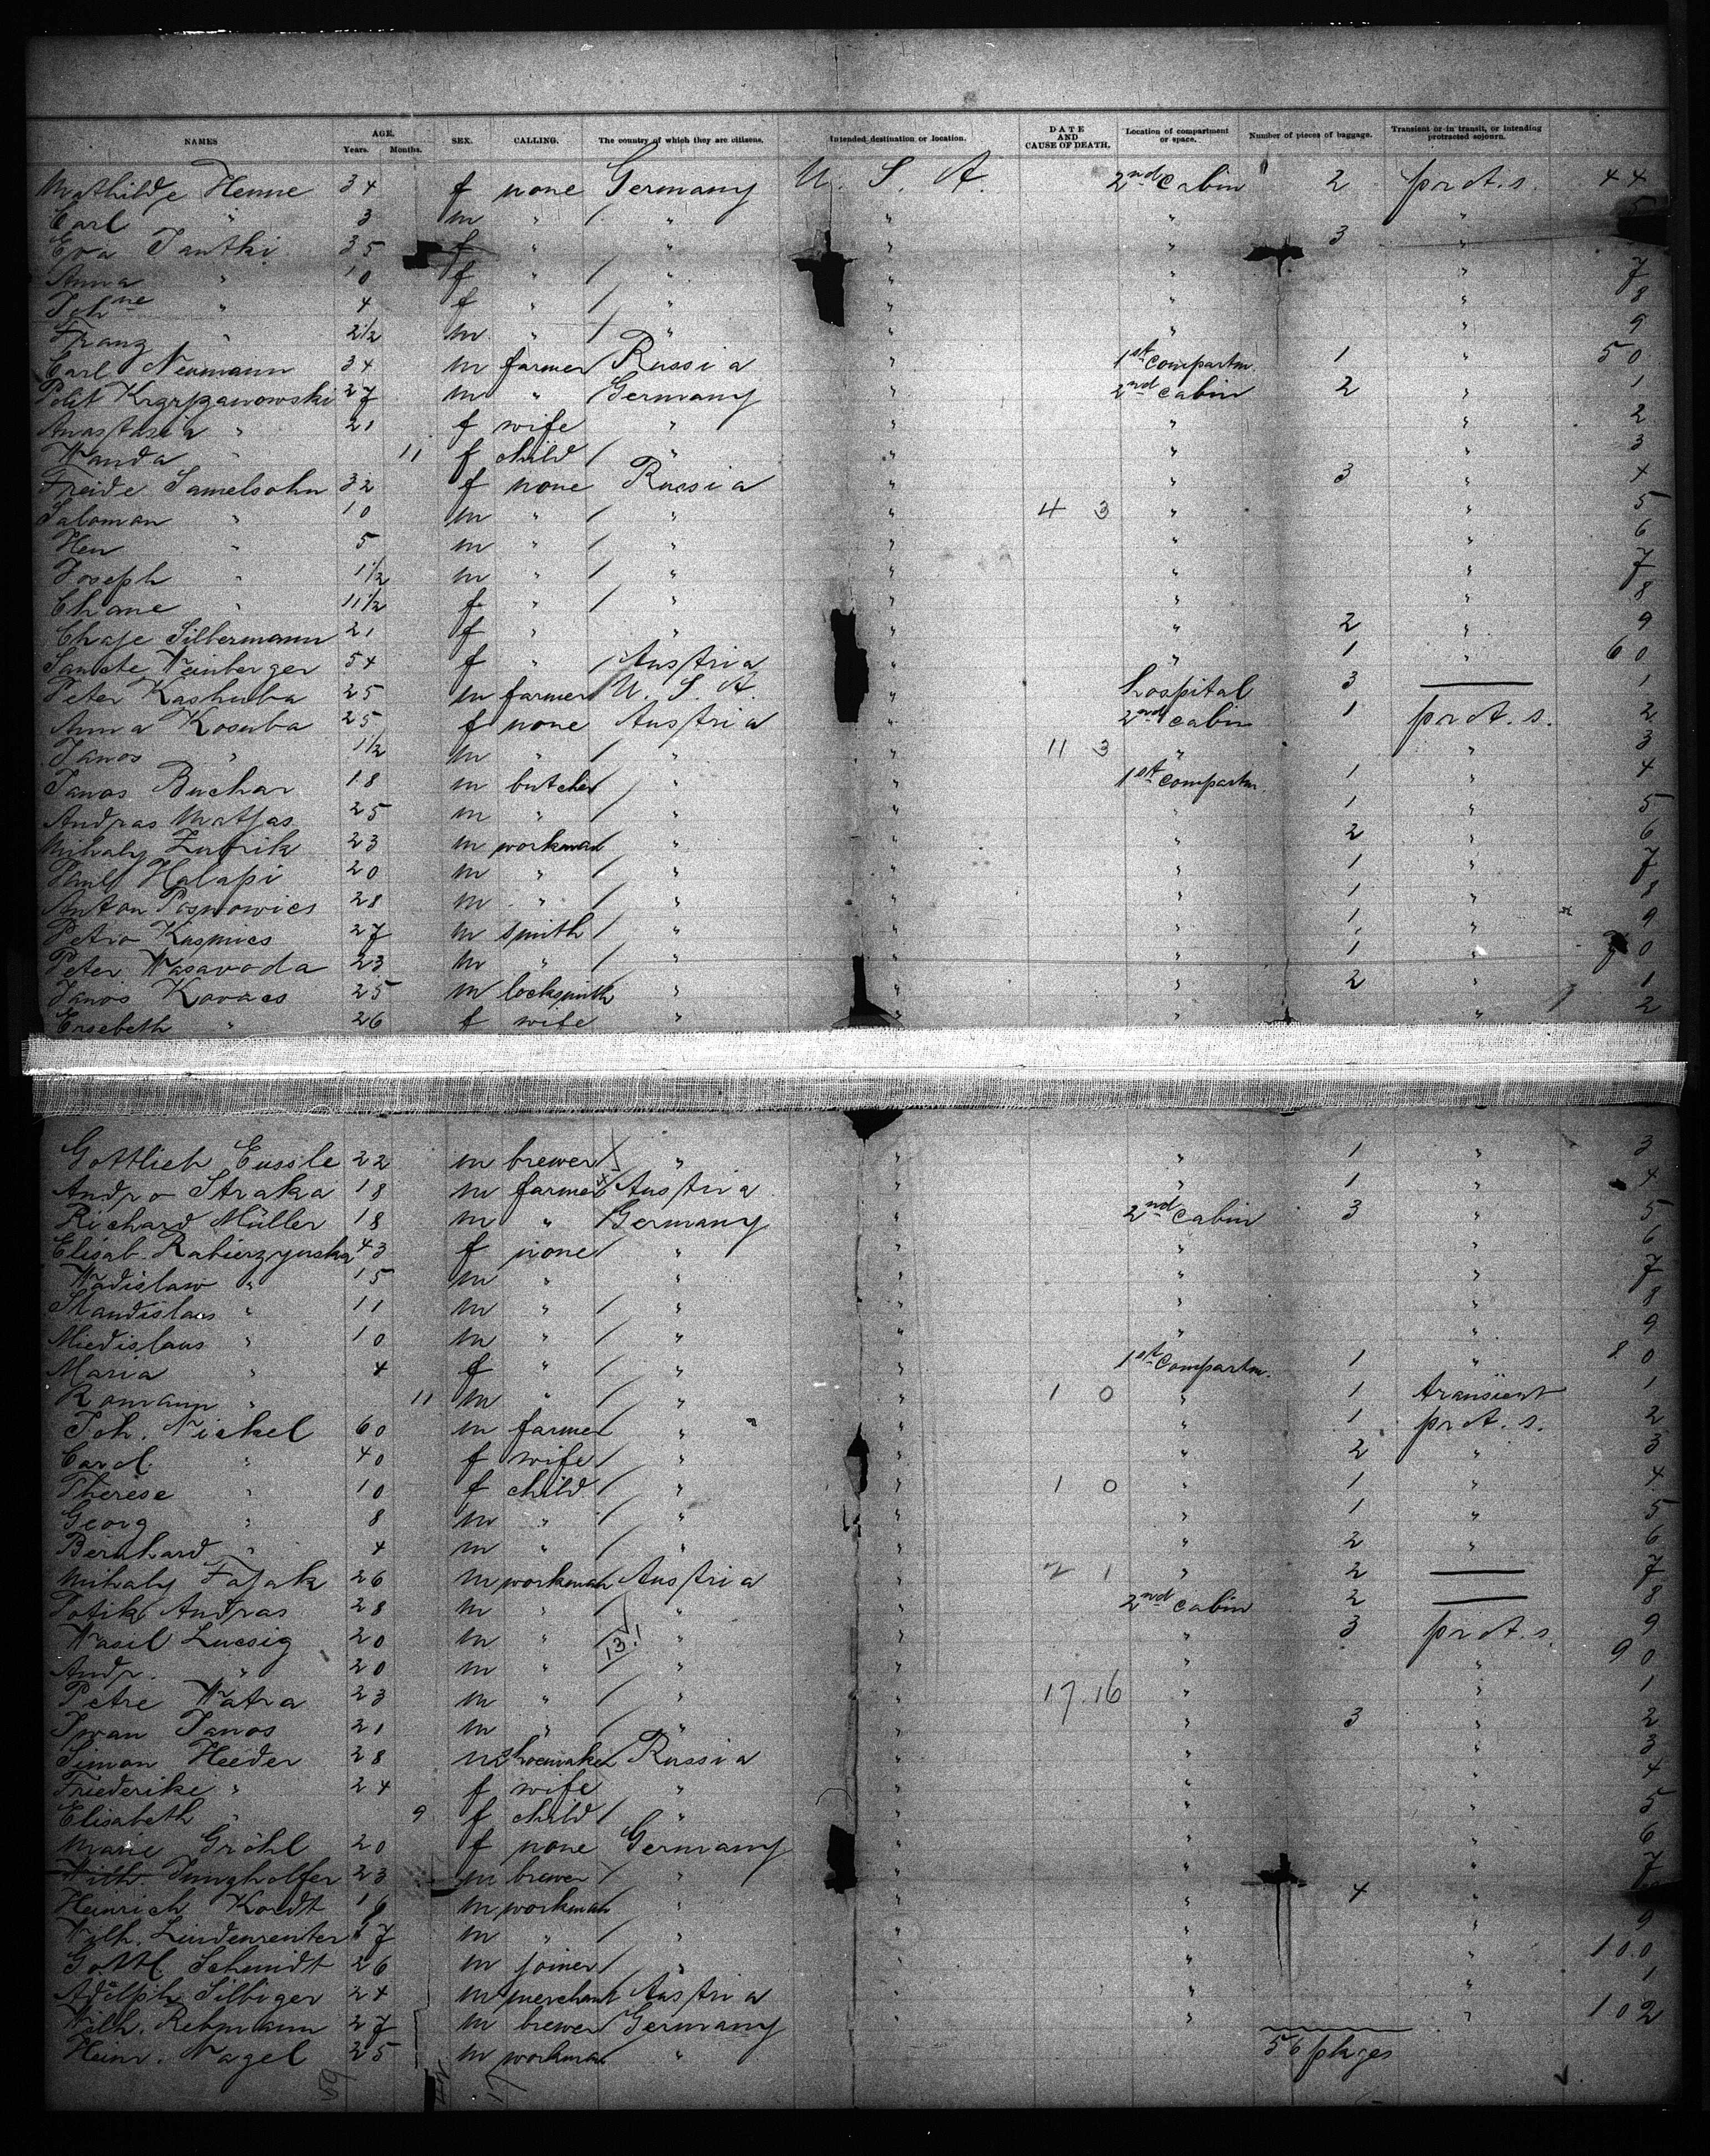 NAMES AGE. Years. Months. SEX. CALLING. The country of which they are citizens. Intended destination or location. DATE AND CAUSE OF DEATH. Location of compartment or space. Number of pieces of baggage. Transient or in transit, or intending protracted sojourn.
Mathilde Henne 34 f none Germany U. S. A. 2nd cabin 2 prot. s. 44
Carl " 3 m " " " " " 5
Eva Jantki 35 f " " " " 3 "
Anna " 10 f " " " " " 7
Joh ne " 4 f " " " " " 8
Franz " 2 1/2 m " " " " " 9
Carl Neumann 34 m farmer Russia " 1st compartm. 1 " 50
Krzyzanowski 27 m " Germany " 2nd cabin 2 " 1
Anastasia " 21 f wife " " " " 2
Wanda " 11 f child " " " " 3
Freide Samelsohn 32 f none Russia " " 3 " 4
Saloman " 10 m " " " 4 3 " " 5
Hen " 5 m " " " " " 6
Joseph " 1 1/2 m " " " " " 7
Chane " 11 1/2 f " " " " " 8
Chaje Silbermann 21 f " " " " 2 " 9
Weinberger 54 f " Austria " " 1 " 60
Peter Kashuba 25 m farmer U. S. A. " Hospital 3 — 1
Anna Kosuba 25 f none Austria " 2nd cabin 1 prot. s. 2
Janos " 1 1/2 m " " " 11 3 " " 3
Janos Buchar 18 m butcher " " 1st compartm. 1 " 4
Andras Matjas 25 m " " " " 1 " 5
Mihaly Zubrik 23 m workman " " " 2 " 6
Halapi 20 m " " " " 1 " 7
Anton 28 m " " " " 1 " 8
Petro Kusmics 27 m smith " " " 1 " 9
Peter Wasavoda 23 m " " " " 1 " 70
Janos Kovacs 25 m locksmith " " " 2 " 1
Ersebeth " 26 f wife " " " " 2
Gottlieb Eussle 22 m brewer " " " 1 " 3
Andro Straka 18 m farmer Austria " " 1 " 4
Richard Müller 18 m " Germany " 2nd cabin 3 " 5
Elisab. 43 f none " " " " 6
Wadislaw " 15 m " " " " " 7
Standislaus " 11 m " " " " " 8
Miedislaus " 10 m " " " " " 9
Maria " 4 f " " " 1st compartm. 1 " 80
Romann " 11 m " " " 1 0 " 1 transient 1
Joh. Nickel 60 m farmer " " " 1 prot. s. 2
Carol. " 40 f wife " " " 2 " 3
Therese " 10 f child " " 1 0 " 1 " 4
Georg " 8 m " " " " 1 " 5
Bernhard " 4 m " " " " 2 " 6
Mihaly Fajak 26 m workman Austria " 2 1 " 2 — 7
Potik Andras 28 m " " " 2nd cabin 2 — 8
Wasil Lucsig 20 m " 13! " " " 3 prot. s. 9
Andr. " 20 m " " " " " 90
Petre Watra 23 m " " " 17.16 " " 1
Iwan Janos 21 m " " " " 3 " 2
Simon Heeder 28 m shoemaker Russia " " " 3
Friederike " 24 f wife " " " " 4
Elisabeth " 9 f child " " " " 5
Marie Gröhl 20 f none Germany " " " 6
Wilh. Jungholfer 23 m brewer " " " " 7
Heinrich Kordt 16 m workman " " " 4 "
Wilh. Lindenreuter 17 m " " " " " 9
Gottl. Schmidt 26 m joiner " " " " 100
Adolph Silbiger 24 m merchant Austria " " " 1
Wilh. Rebmann 27 m brewer Germany " " " 102
Heinr. Nagel 25 m workman " 56 pkges
59 17